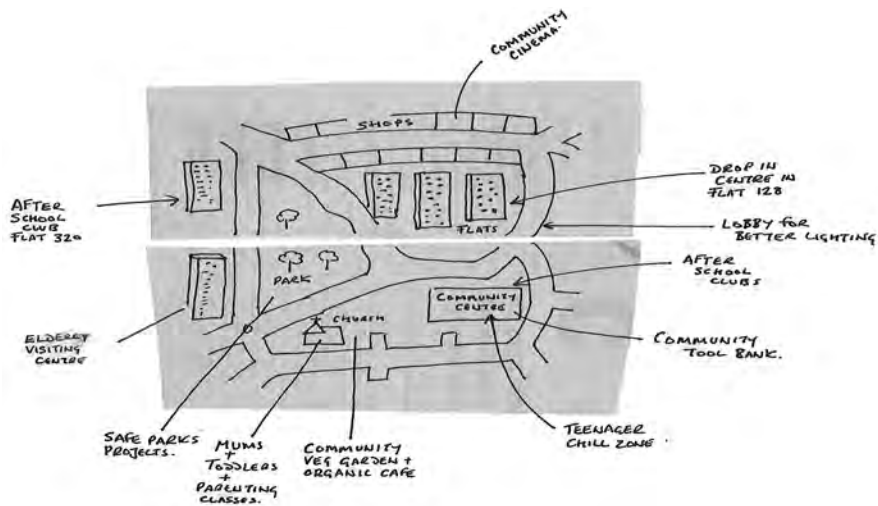 COMMUNITY
CINEMA.
SHOPS
AFTER
SCHOOL
CLUB
FLAT 320
DROP IN
CENTRE IN
FLAT 128
FLATS
LOBBY FOR
BETTER LIGHTING
PARK
AFTER
SCHOOL
CLUBS
COMMUNITY
CENTRE
CHURCH
ELDERLY
VISITING
CENTRE
COMMUNITY
TOOL BANK.
SAFE PARKS
PROJECTS.
MUMS
+
TODDLERS
+
PARENTING
CLASSES.
COMMUNITY
VEG GARDEN +
ORGANIC CAFE
TEENAGER
CHILL ZONE.